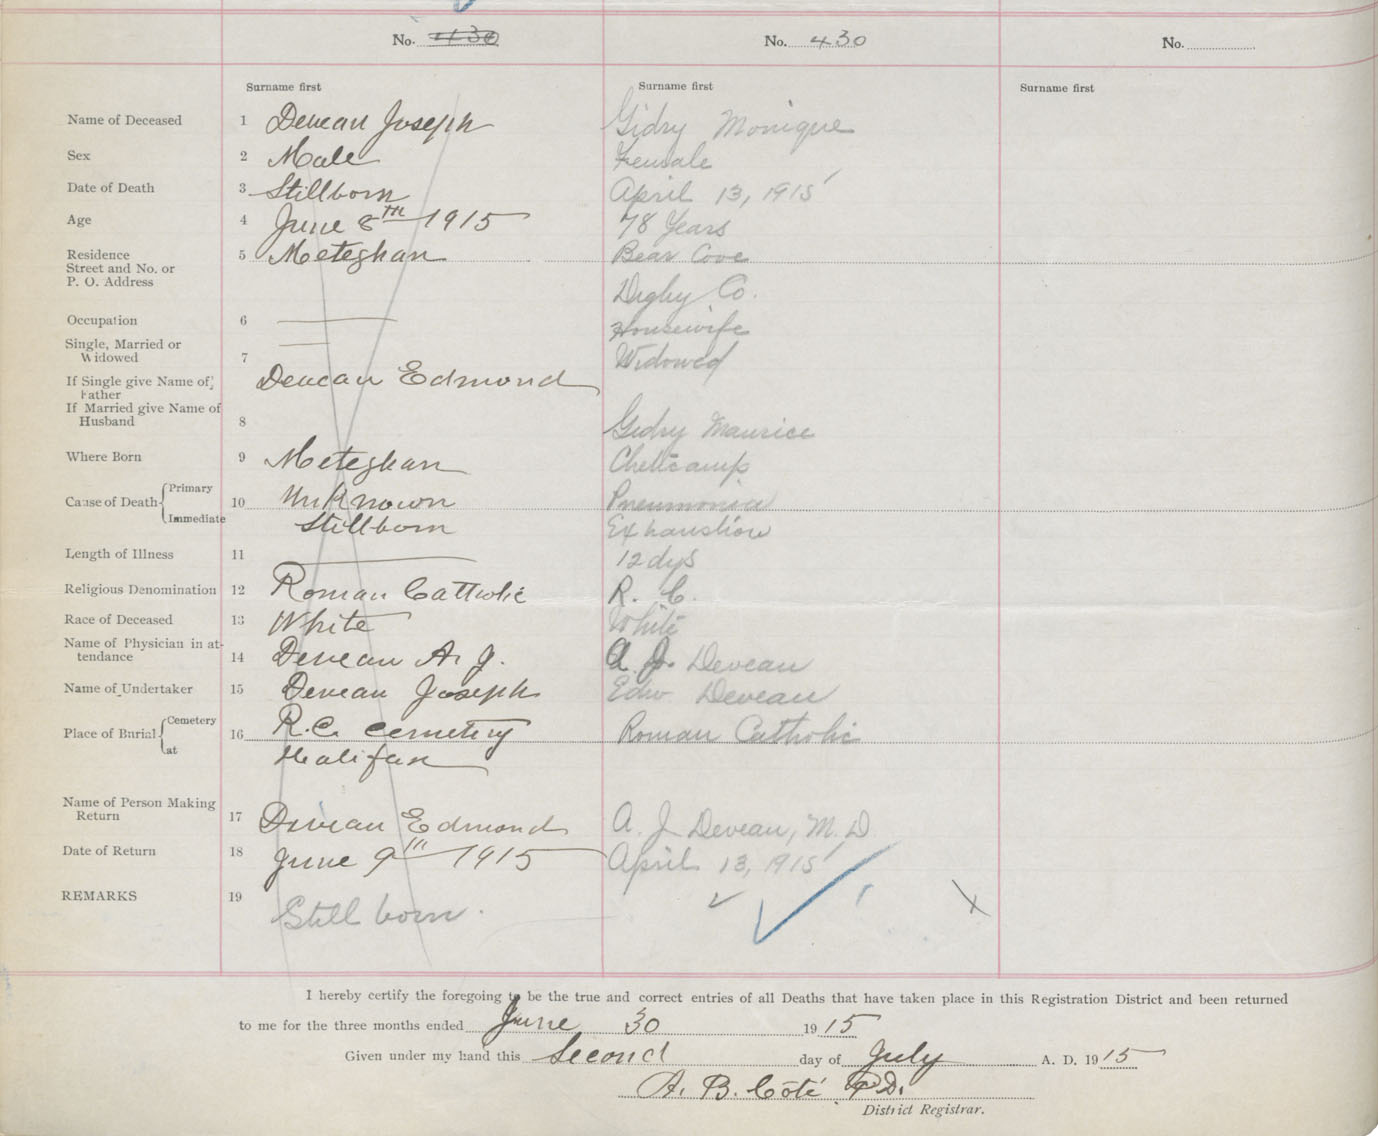 No. 430 No. 430 No.
Surname first Surname first Surname first
Name of Deceased 1 Deveau Joseph Gidry Monique
Sex 2 Male Female
Date of Death 3 Stillborn April 13, 1915
Age 4 June 8TH 1915 78 Years
Residence 5 Meteghan Bear Cove
Street and No. or
P. O. Address Digby Co.
Occupation 6 Housewife
Single, Married or
Widowed 7 Widowed
If Single give Name of Deveau Edmond
Father
If Married give Name of
Husband 8 Gidry Maurice
Where Born 9 Meteghan Cheticamp
Cause of Death Primary 10 Unknown Pneumonia
Immediate Stillborn Exhaustion
Length of Illness 11 12 dys
Religious Denomination 12 Roman Cattholic R. C.
Race of Deceased 13 White White
Name of Physician in at-
tendance 14 Deveau A. J. A. J. Deveau
Name of Undertaker 15 Deveau Joseph Edw Deveau
Place of Burial Cemetery 16 R.C. Cemetery Roman Catholic
at Halifax
Name of Person Making
Return 17 Deveau Edmond A. J Deveau, M. D
Date of Return 18 June 9th 1915 April 13, 1915
REMARKS 19 Still born.
I hereby certify the foregoing to be the true and correct entries of all Deaths that have taken place in this Registration District and been returned
to me for the three months ended June 30 1915
Given under my hand this Second day of July A. D. 1915
A. B. Côté
District Registrar.